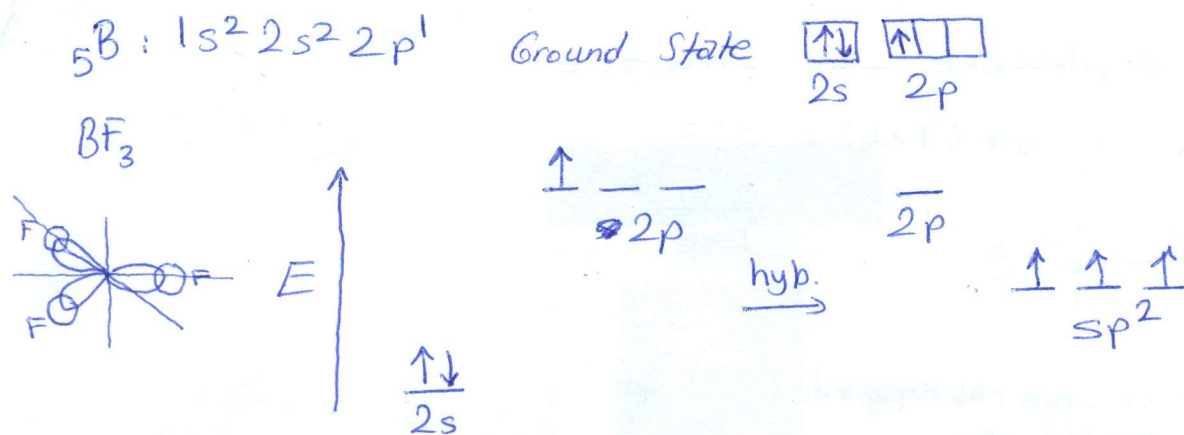 ₅B : 1s² 2s² 2p¹ Ground State ↑↓ ↑
2s 2p
BF₃
↑
2p 2p
F
E hyb. ↑ ↑ ↑
F
F sp²
↑↓
2s